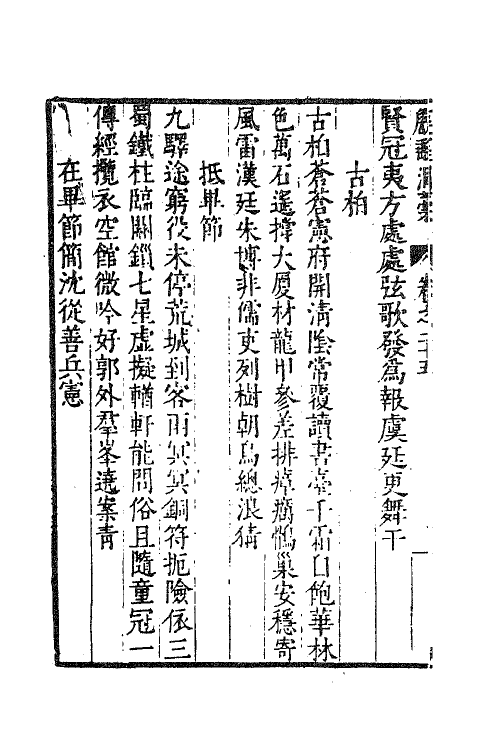 卷之十五
賢冠夷方處處弦歌發爲報虞廷更舞干
古柏
古柏蒼蒼憲府開淸陰常覆讀書臺千霜自飽華林
色萬石遙撐大厦材龍甲參差排瘴癘鶴巢安穩寄
風雷漢廷朱博非儒吏列樹朝烏總浪猜
抵畢節
九驛途窮從未停荒城到客雨冥冥銅符扼險依三
蜀鐵柱臨關鎖七星虛擬輶軒能問俗且隨童冠一
傳經攬衣空館微吟好郭外羣峯遶案靑
在畢節簡沈從善兵憲